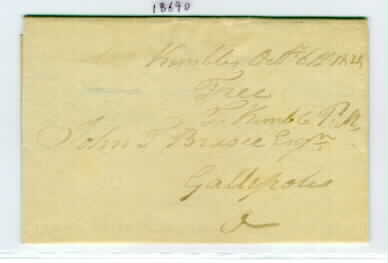 13690
Kimbles Oct 6th 1828
Free
T. Kimble P.M.
John T Brasee Esqr
Gallipolis
O